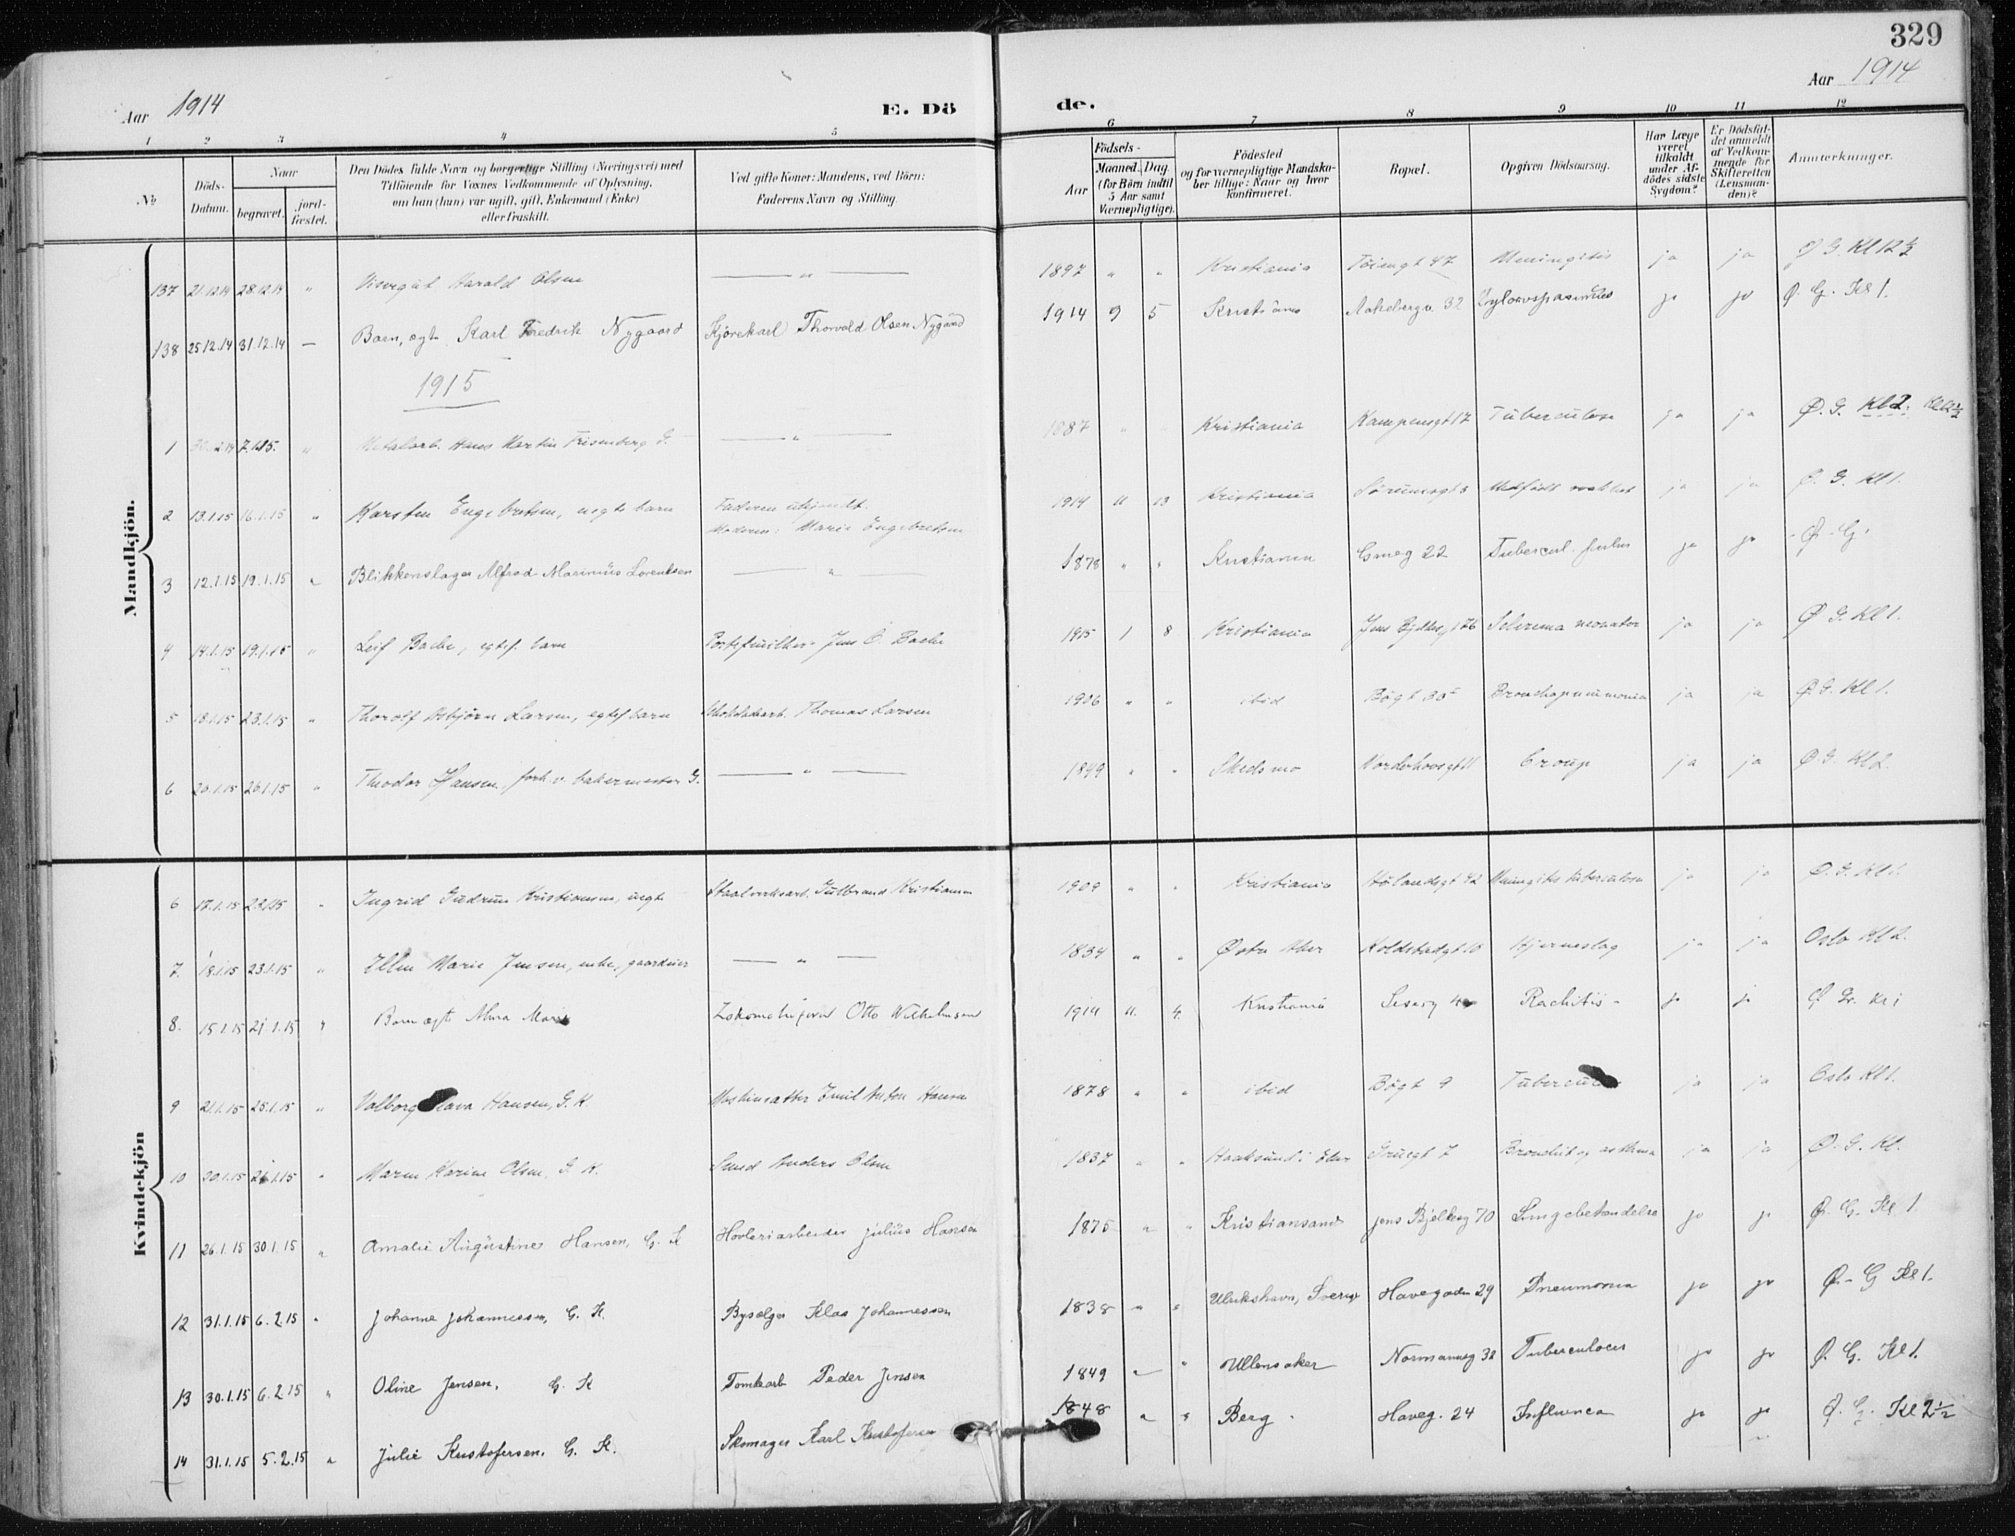 329
Aar 1914
E. Dö de.
Aar 1914
1 2 3 4 5 6 7 8 9 10 11 12
№
Döds-Datum.
Naar
begravet.
jord-fæstet.
Den Dödes fulde Navn og borgerlige Stilling (Næringsvei) med
Tilföiende for Voxnes Vedkommende af Oplysning,
om han (hun) var ugift, gift, Enkemand (Enke)
eller fraskilt.
Ved gifte Koner: Mandens, ved Börn:
Faderens Navn og Stilling.
Födsels-
Aar
Maaned. Dag
(for Börn indtil 5 Aar samt Værnepligtige).
Födested
og for værnepligtige Mandskaber tillige: Naar og hvor konfirmeret.
Bopæl.
Opgiven Dödsaarsag.
Har Læge været tilkaldt under Afdödes sidste Sygdom?
Er Dödsfaldet anmeldt af Vedkommende for Skifteretten (Lensmanden)?
Anmærkninger.
Mandkjön.
137 21.12.14 28.12.14 " Visergut Harald Olsen — " — 1897 " " Kristiania Töiengt 47 Meningitis ja ja Ø G. Kl 2 ½
138 25.12.14 31.12.14 — Barn, egte Karl Fredrik Nygaard Kjörekarl Thorvald Olsen Nygaard 1914 9 5 Kristiania Aakebergv 32 Pylorospasmus ja ja Ø. G. Kl 1.
1915
1 7.1.15. " Metalarb. Hans Martin G. — " — 1887 " " Kristiania Kampensgt 17 Tuberculose ja ja Ø. G. Kl 2. Kl 2 ½
2 13.1.15 16.1.15 " Karsten Engebretsen, uegte barn Faderen ukjendt.
Moderen: Marie Engebretsen 1914 11 13 Kristiania Sörumsgt 3 Medfödt svakhet ja ja Ø. G. Kl 1.
3 12.1.15 19.1.15 " Blikkenslager Alfred Marinius Lorentsen — " — 1878 " " Kristiania 22 Tubercul. pulm ja ja Ø. G.
4 14.1.15 19.1.15 " Leif Bache, egtef. barn Jens O. Bache 1915 1 8 Kristiania Jens Bjelkesgt 76 Sclerema neonator ja ja Ø G. Kl 1.
5 18.1.15 23.1.15 " Thorolf Asbjörn Larsen, egtef barn Chokoladearb. Thomas Larsen 1906 " " ibid Bögt 30 Bronchopneumonia ja ja Ø G. Kl 1.
6 20.1.15 26.1.15 " Theodor Hansen, forh.v. bakermester G. — " — 1849 " " Skedsmo Norderhovsgt 11 Croup ja ja Ø G. Kl 2.
Kvindekjön
6 17.1.15 " Ingrid Gudrun Kristiansen, uegte Staalverksarb. Gulbrand Kristiansen 1909 " " Kristiania Hölandsgt 42 Meningitis tuberculosa ja ja Ø. G. Kl 1.
7. 18.1.15 23.1.15 " Ellen Marie Jensen, enke, gaardeier — " — 1834 " " Østre Aker Koldstadgt 10 Hjerneslag ja ja Oslo Kl 2.
8. 15.1.15 21.1.15 " Barn egte Alma Marie Lokomotivförer Otto Wilhelmsen 1914 11. 4. Kristiania Rachitis ja ja Ø Gr. Kl 1
9 21.1.15 25.1.15 " Valborg Hansen, G. K. Maskinsætter Emil Anton Hansen 1878 " " ibid Bögt 9 ja ja Oslo Kl 1.
10 20.1.15 26.1.15 " Maren Karine Olsen, G. K. Smed Anders Olsen 1837 " " Haaksund i Eker Gruegt 7 Bronchit og asthma ja ja Ø. G. Kl.
11 26.1.15 30.1.15 " Amalie Augustine Hansen, G. K Hövleriarbeider Julius Hansen 1875 " " Kristiansand Jens Bjelkesg 70 Lungebetændelse ja ja Ø. G. Kl 1
12 31.1.15 6.2.15 " Johanne Johannessen, G. K. Bysælger Klas Johannessen 1838 " " Ulrikshavn, Sverige Havegaden 29 Pneumonia ja ja Ø. G Kl 1.
13 30.1.15 6.2.15 " Oline Jensen. G. K Tomtearb Peder Jensen 1849 " " Ullensaker Normannsg 38 Tuberculoses ja ja Ø. G. Kl 1.
14 31.1.15 5.2.15 " Julie Kristofersen. G. K. Skomager Karl Kristofersen 1848 " " Berg Haveg. 24 Influenca ja ja Ø. G. Kl 2 ½